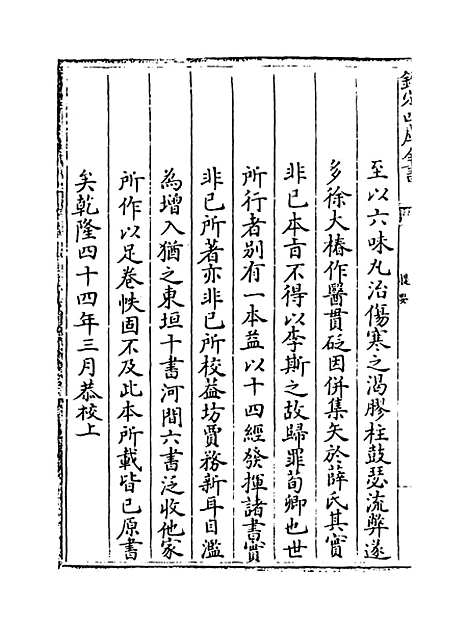 欽定四庫全書
提要
至以六味丸治傷寒之渴膠柱鼓瑟流弊遂
多徐大椿作醫貫砭因併集矢於薛氏其實
非已本㫖不得以李斯之故歸罪荀卿也世
所行者别有一本益以十四經發揮諸書實
非已所著亦非已所校益坊賈務新耳目濫
為增入猶之東垣十書河間六書泛收他家
所作以足卷帙固不及此本所載皆已原書
矣乾隆四十四年三月恭校上